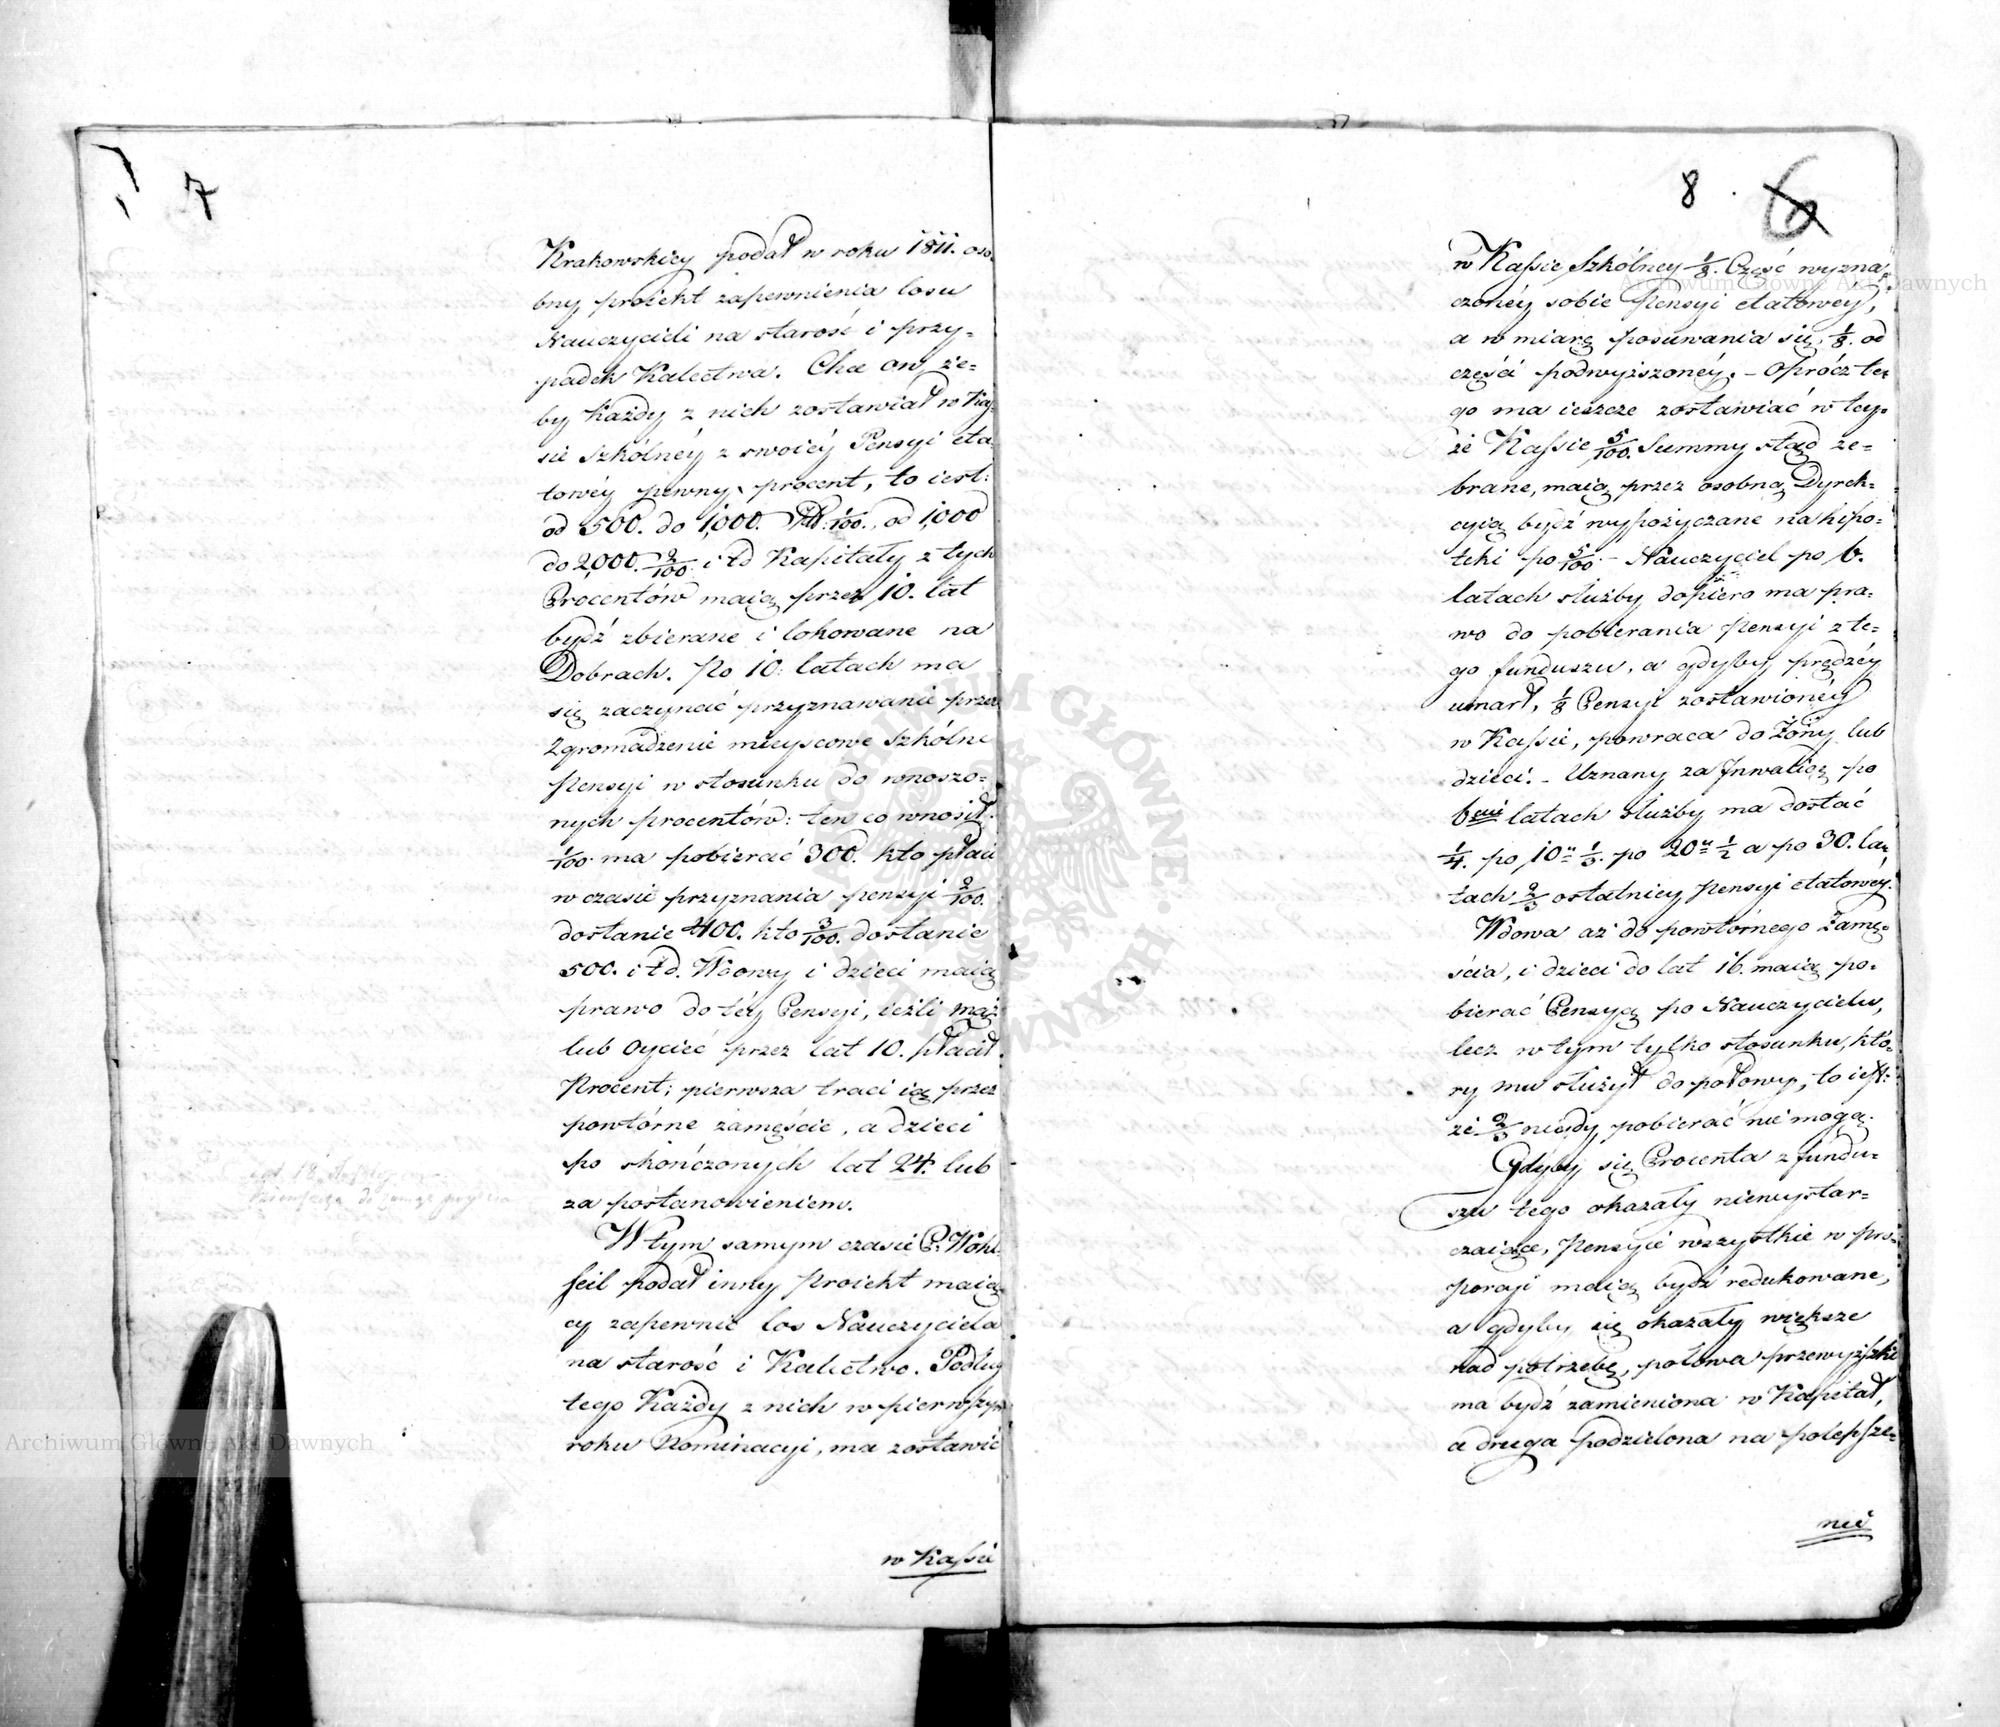 7
Krakowskiey podał w roku 1811. oso-
bny proiekt zapewnienia losu
Nauczycieli na starość i przy=
padek Kalectwa. Chce on, że=
by Każdy z nich zostawiał w Kas-
sie Szkólnéy z swoiéy Pensyi eta-
towéy pewny procent, to iest:
od 500. do 1,000. 1/100., od 1,000
do 2,000. 2/100. i td Kapitały z tych
Procentów maią przez 10. lat
bydź zbierane i lokowane na
Dobrach. Po 10. latach ma
się zaczynać przyznawanie przez
Zgromadzenie mieyscowe Szkólne
Pensyi w stosunku do wnoszo=
nych procentów: ten co wnosił
1/100. ma pobierać 300. kto płaci
w czasie przyznania pensyi 2/100.
dostanie 400. kto 3/100. dostanie
500. i td. Wdowy i dzieci maią
prawo do téy Pensyi, ieżli mąż
lub Oyciec przez lat 10. płacił
Procent; pierwsza traci ią przez
powtórne zamęście, a dzieci
po skończonych lat 24. lub
za postanowieniem.
W tym samym czasie P. Wohl-
feil podał inny Proiekt maią-
cy zapewnić los Nauczyciela
na starość i Kalectwo. Podług
tego Każdy z nich w pierwszym
roku Nominacyi, ma zostawić
w Kassie
8
w Kassie Szkólney 1/8. Część wyzna-
czonéy sobie Pensyi etatowey,
a w miarę posuwania się, 1/8. od
części podwyższonéy. – Oprócz te-
go ma ieszcze zostawiać w tey-
że Kassie 5/100. Summy stąd ze=
brane, maią przez osobną Dyrek=
cyią bydź wypożyczane na hipo=
teki po 5/100. – Nauczyciel po 6.
latach służby dopiero ma pra-
wo do pobierania Pensyi z te=
go funduszu, a gdyby prędzéy
umarł, 1/8 Pensyi zostawionéy
w Kassie, powraca do Żony lub
dzieci. – Uznany za Inwalidę po
6ciu latach służby ma dostać
1/4. po 10u 1/3. po 20u 1/2 a po 30. la-
tach 2/3 ostatniey Pensyi etatowey.
Wdowa aż do powtórnego Zamę-
ścia, i dzieci do lat 16. maią po-
bierać Pensyą po Nauczycielu,
lecz w tym tylko stosunku, któ-
ry mu służył do połowy, to iest:
że 2/3 nigdy pobierać nie mogą.
Gdyby się Procenta z fundu-
szu tego okazały niewystar=
czaiące, Pensyie wszystkie w pro-
porcyi maią bydź redukowane,
a gdyby się okazały większe
nad potrzebę, połowa przewyższki
ma bydź zamieniona w Kapitał,
a druga podzielona na polepsze-
nie
Archiwum Główne Akt Dawnych
Archiwum Główne Akt Dawnych